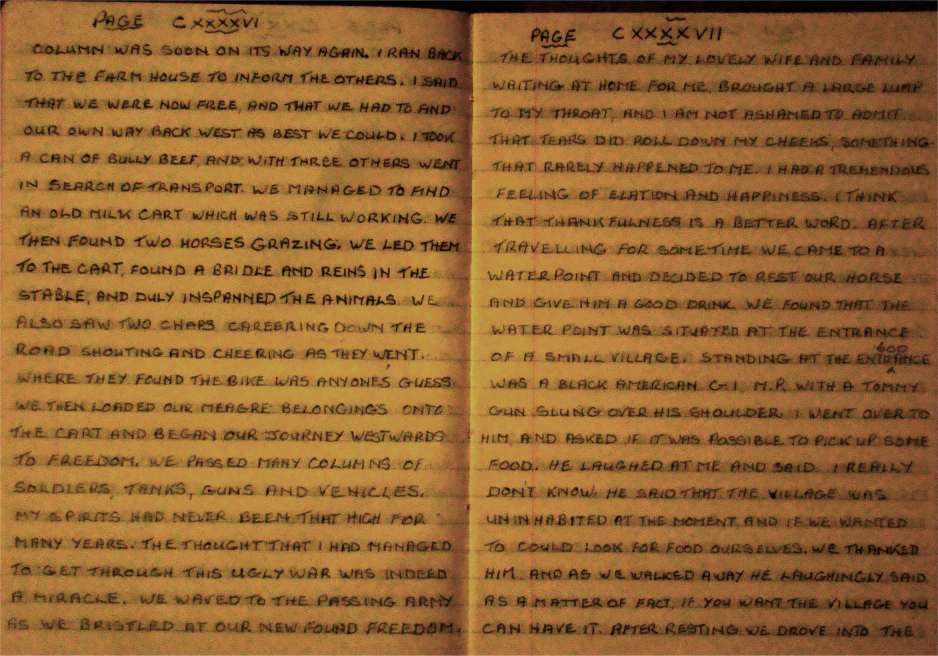 PAGE CXXXXVI
COLUMN WAS SOON ON ITS WAY AGAIN. I RAN BACK
TO THE FARM HOUSE TO INFORM THE OTHERS. I SAID
THAT WE WERE NOW FREE, AND THAT WE HAD TO FIND
OUR OWN WAY BACK WEST AS BEST WE COULD. I TOOK
A CAN OF BULLY BEEF, AND WITH THREE OTHERS WENT
IN SEARCH OF TRANSPORT. WE MANAGED TO FIND
AN OLD MILK CART WHICH WAS STILL WORKING. WE
THEN FOUND TWO HORSES GRAZING. WE LED THEM
TO THE CART, FOUND A BRIDLE AND REINS IN THE
STABLE, AND DULY INSPANNED THE ANIMALS. WE
ALSO SAW TWO CHAPS CAREERING DOWN THE
ROAD SHOUTING AND CHEERING AS THEY WENT.
WHERE THEY FOUND THE BIKE WAS ANYONES' GUESS.
WE THEN LOADED OUR MEAGRE BELONGINGS ONTO
THE CART AND BEGAN OUR JOURNEY WESTWARDS
TO FREEDOM. WE PASSED MANY COLUMNS OF
SOLDIERS, TANKS, GUNS AND VEHICLES.
MY SPIRITS HAD NEVER BEEN THAT HIGH FOR
MANY YEARS. THE THOUGHT THAT I HAD MANAGED
TO GET THROUGH THIS UGLY WAR WAS INDEED
A MIRACLE. WE WAVED TO THE PASSING ARMY
AS WE BRISTLED AT OUR NEW FOUND FREEDOM.
PAGE CXXXXVII
THE THOUGHTS OF MY LOVELY WIFE AND FAMILY
WAITING AT HOME FOR ME, BROUGHT A LARGE LUMP
TO MY THROAT, AND I AM NOT ASHAMED TO ADMIT
THAT TEARS DID ROLL DOWN MY CHEEKS, SOMETHING
THAT RARELY HAPPENED TO ME. I HAD A TREMENDOUS
FEELING OF ELATION AND HAPPINESS. I THINK
THAT THANKFULNESS IS A BETTER WORD. AFTER
TRAVELLING FOR SOMETIME WE CAME TO A
WATER POINT AND DECIDED TO REST OUR HORSE
AND GIVE HIM A GOOD DRINK. WE FOUND THAT THE
WATER POINT WAS SITUATED AT THE ENTRANCE
OF A SMALL VILLAGE. STANDING AT THE ENTRANCE
WAS A BLACK AMERICAN G.I. M.P. WITH A TOMMY
GUN SLUNG OVER HIS SHOULDER. I WENT OVER TO
HIM, AND ASKED IF IT WAS POSSIBLE TO PICK UP SOME
FOOD. HE LAUGHED AT ME AND SAID I REALLY
DON'T KNOW. HE SAID THAT THE VILLAGE WAS
UNINHABITED AT THE MOMENT, AND IF WE WANTED
TO COULD LOOK FOR FOOD OURSELVES. WE THANKED
HIM AND AS WE WALKED AWAY HE LAUGHINGLY SAID
AS A MATTER OF FACT, IF YOU WANT THE VILLAGE YOU
CAN HAVE IT. AFTER RESTING WE DROVE INTO THE